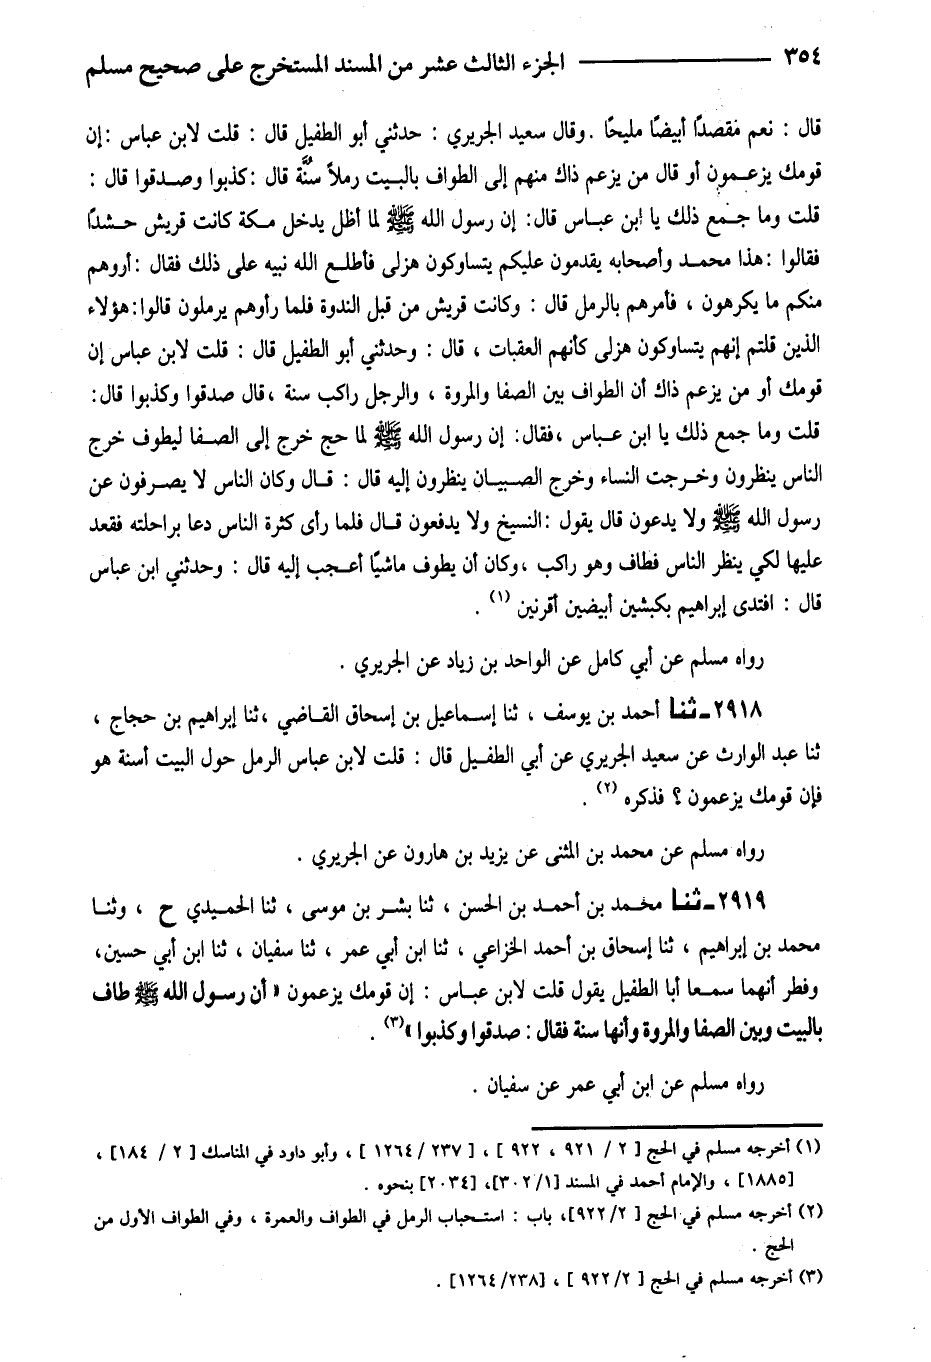 ٣٥٤ ـــــــــ الجزء الثالث عشر من المسند المستخرج على صحيح مسلم
قال : نعم مقصدًا أبيضًا مليحًا . وقال سعيد الجريري : حدثني أبو الطفيل قال : قلت لابن عباس :إن
قومك يزعمون أو قال من يزعم ذاك منهم إلى الطواف بالبيت رملاً سنُّة قال :كذبوا وصدقوا قال :
قلت وما جمع ذلك يا ابن عباس قال: إن رسول الله ﷺ لما أظل يدخل مكة كانت قريش حشدًا
فقالوا :هذا محمد وأصحابه يقدمون عليكم يتساوكون هزلى فأطلع الله نبيه على ذلك فقال :أروهم
منكم ما يكرهون ، فأمرهم بالرمل قال : وكانت قريش من قبل الندوة فلما رأوهم يرملون قالوا:هؤلاء
الذين قلتم إنهم يتساوكون هزلى كأنهم العقبات ، قال : وحدثني أبو الطفيل قال : قلت لابن عباس إن
قومك أو من يزعم ذاك أن الطواف بين الصفا والمروة ، والرجل راكب سنة ،قال صدقوا وكذبوا قال:
قلت وما جمع ذلك يا ابن عباس ،فقال: إن رسول الله ﷺ لما حج خرج إلى الصفا ليطوف خرج
الناس ينظرون وخرجت النساء وخرج الصبيان ينظرون إليه قال : قال وكان الناس لا يصرفون عن
رسول الله ﷺ ولا يدعون قال يقول :النسيخ ولا يدفعون قال فلما رأى كثرة الناس دعا براحلته فقعد
عليها لكي ينظر الناس فطاف وهو راكب ،وكان أن يطوف ماشيًا أعجب إليه قال : وحدثني ابن عباس
قال : افتدى إبراهيم بكبشين أبيضين أقرنين (١) .
رواه مسلم عن أبي كامل عن الواحد بن زياد عن الجريري .
٢٩١٨ـ ثنا أحمد بن يوسف ، ثنا إسماعيل بن إسحاق القاضي ،ثنا إبراهيم بن حجاج ،
ثنا عبد الوارث عن سعيد الجريري عن أبي الطفيل قال : قلت لابن عباس الرمل حول البيت أسنة هو
فإن قومك يزعمون ؟ فذكره (٢) .
رواه مسلم عن محمد بن المثنى عن يزيد بن هارون عن الجريري .
٢٩١٩ـ ثنا محمد بن أحمد بن الحسن ، ثنا بشر بن موسى ، ثنا الحميدي ح ، وثنا
محمد بن إبراهيم ، ثنا إسحاق بن أحمد الخزاعي ، ثنا ابن أبي عمر ، ثنا سفيان ، ثنا ابن أبي حسين،
وفطر أنهما سمعا أبا الطفيل يقول قلت لابن عباس : إن قومك يزعمون « أن رسول الله ﷺ طاف
بالبيت وبين الصفا والمروة وأنها سنة فقال : صدقوا وكذبوا »(٣) .
رواه مسلم عن ابن أبي عمر عن سفيان .
(١) أخرجه مسلم في الحج [ ٢ / ٩٢١ ، ٩٢٢ ] ، [ ٢٣٧ / ١٢٦٤ ] ، وأبو داود في المناسك [ ٢ / ١٨٤] ،
[١٨٨٥] ، والإمام أحمد في المسند [٣٠٢/١]، [٢٠٣٤] بنحوه .
(٢) أخرجه مسلم في الحج [ ٩٢٢/٢]، باب : استحباب الرمل في الطواف والعمرة ، وفي الطواف الأول من
الحج .
(٣) أخرجه مسلم في الحج [ ٩٢٢/٢ ] ، [١٢٦٤/٢٣٨] .